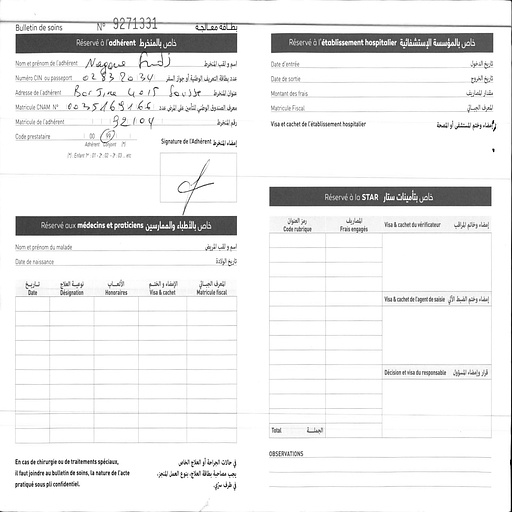 Bulletin de soins N° 9271331 بطاقة معالجة
Réservé à l'adhérent خاص بالمنخرط
Nom et prénom de l'adhérent اسم و لقب المنخرط
Numéro CIN ou passeport 02832034 عدد بطاقة التعريف الوطنية أو جواز السفر
Adresse de l'adhérent 4015 Sousse عنوان المنخرط
Matricule CNAM N° 0035169166 معرف الصندوق الوطني للتأمين على المرض عدد
Matricule de l'adhérent 92104 رقم المنخرط
Code prestataire 00 99
Adhérent Conjoint (*)
(*). Enfant 1er : 01 - 2 : 02 - 3 : 03 ... etc
Signature de l'Adhérent إمضاء المنخرط
Réservé aux médecins et praticiens خاص بالأطباء والممارسين
Nom et prénom du malade اسم و لقب المريض
Date de naissance تاريخ الولادة
تاريخ نوعية العلاج الأتعاب الإمضاء و الختم المعرف الجبائي
Date Désignation Honoraires Visa & cachet Matricule fiscal
En cas de chirurgie ou de traitements spéciaux,
il faut joindre au bulletin de soins, la nature de l'acte
pratiqué sous pli confidentiel.
في حالات الجراحة أو العلاج الخاص
يجب مصاحبة بطاقة العلاج، بنوع العمل المنجز،
في ظرف سري.
Réservé à l'établissement hospitalier خاص بالمؤسسة الإستشفائية
Date d'entrée تاريخ الدخول
Date de sortie تاريخ الخروج
Montant des frais مقدار المصاريف
Matricule Fiscal المعرف الجبائي
Visa et cachet de l'établissement hospitalier إمضاء وختم المستشفى أو المصحة
Réservé à la STAR خاص بتأمينات ستار
رمز العنوان المصاريف
Code rubrique Frais engagés
Visa & cachet du vérificateur إمضاء وخاتم المراقب
Visa & cachet de l'agent de saisie إمضاء وختم الضبط الآلي
Décision et visa du responsable قرار وإمضاء المسؤول
Total الجملة
OBSERVATIONS